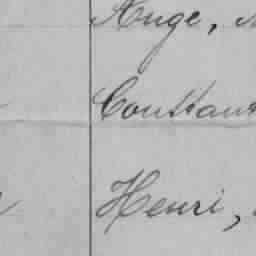 Ange,
Constant
Henri,